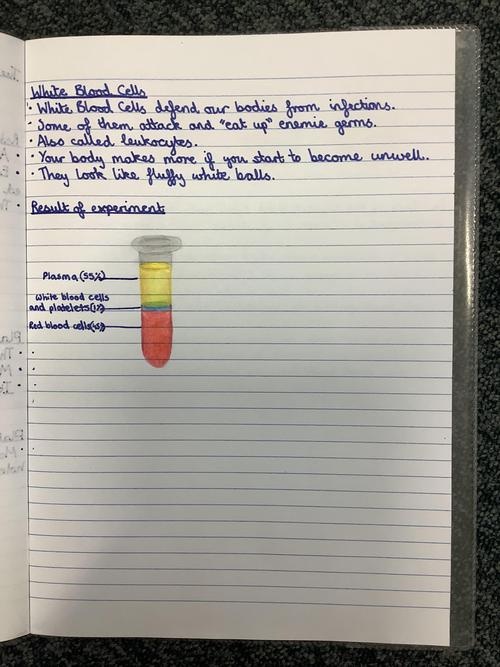 White Blood Cells
· White Blood Cells defend our bodies from infections.
· Some of them attack and "eat up" enemie germs.
· Also called leukocytes.
· Your body makes more if you start to become unwell.
· They look like fluffy white balls.
Result of experiment
Plasma (55%)
White blood cells
and platelets (1%)
Red blood cells (45%)